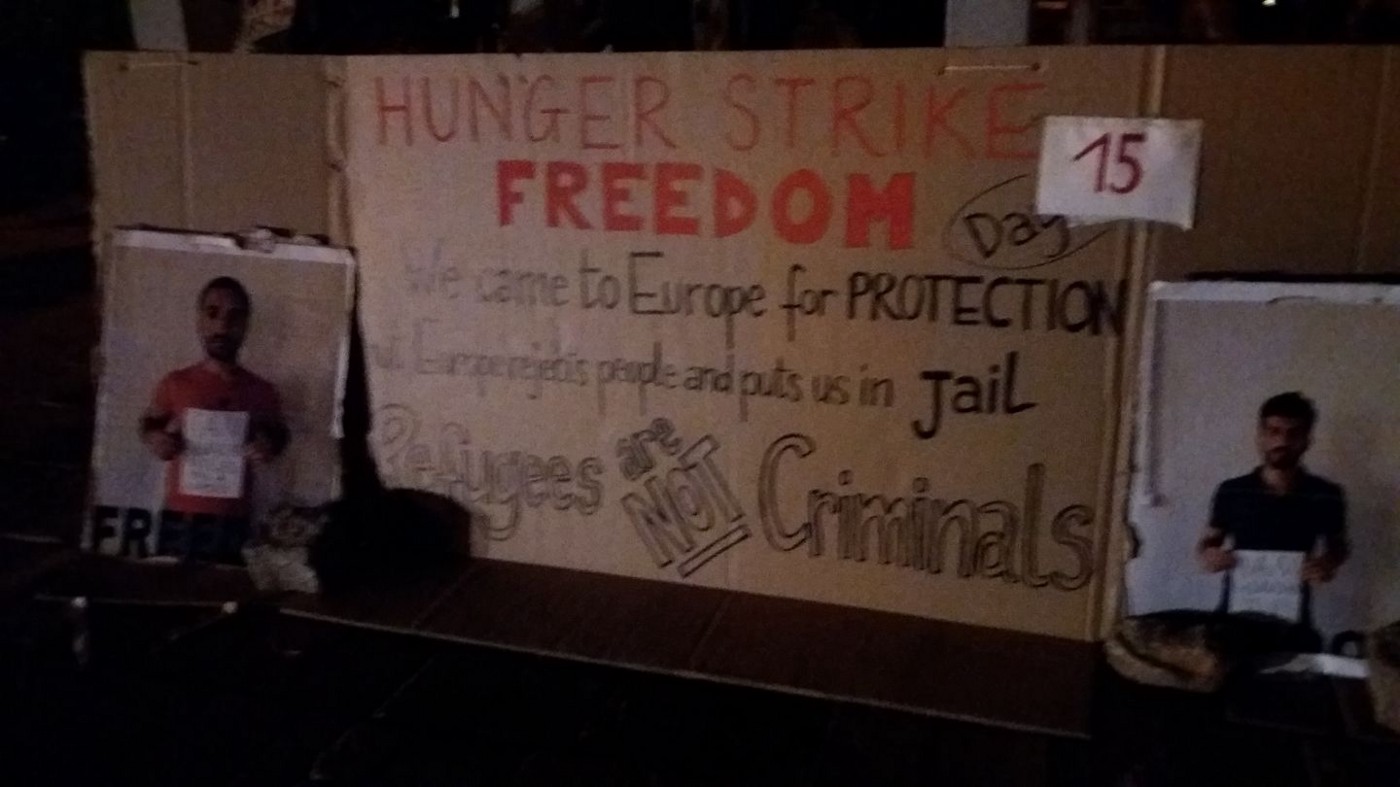 HUNGER STRIKE
15
FREEDOM
Day
We came to Europe for PROTECTION
Europe rejects people and puts us in Jail
Refugees are NOT Criminals